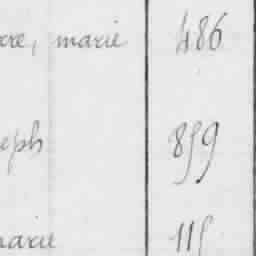 rre, marie 486
seph 859
marie 115